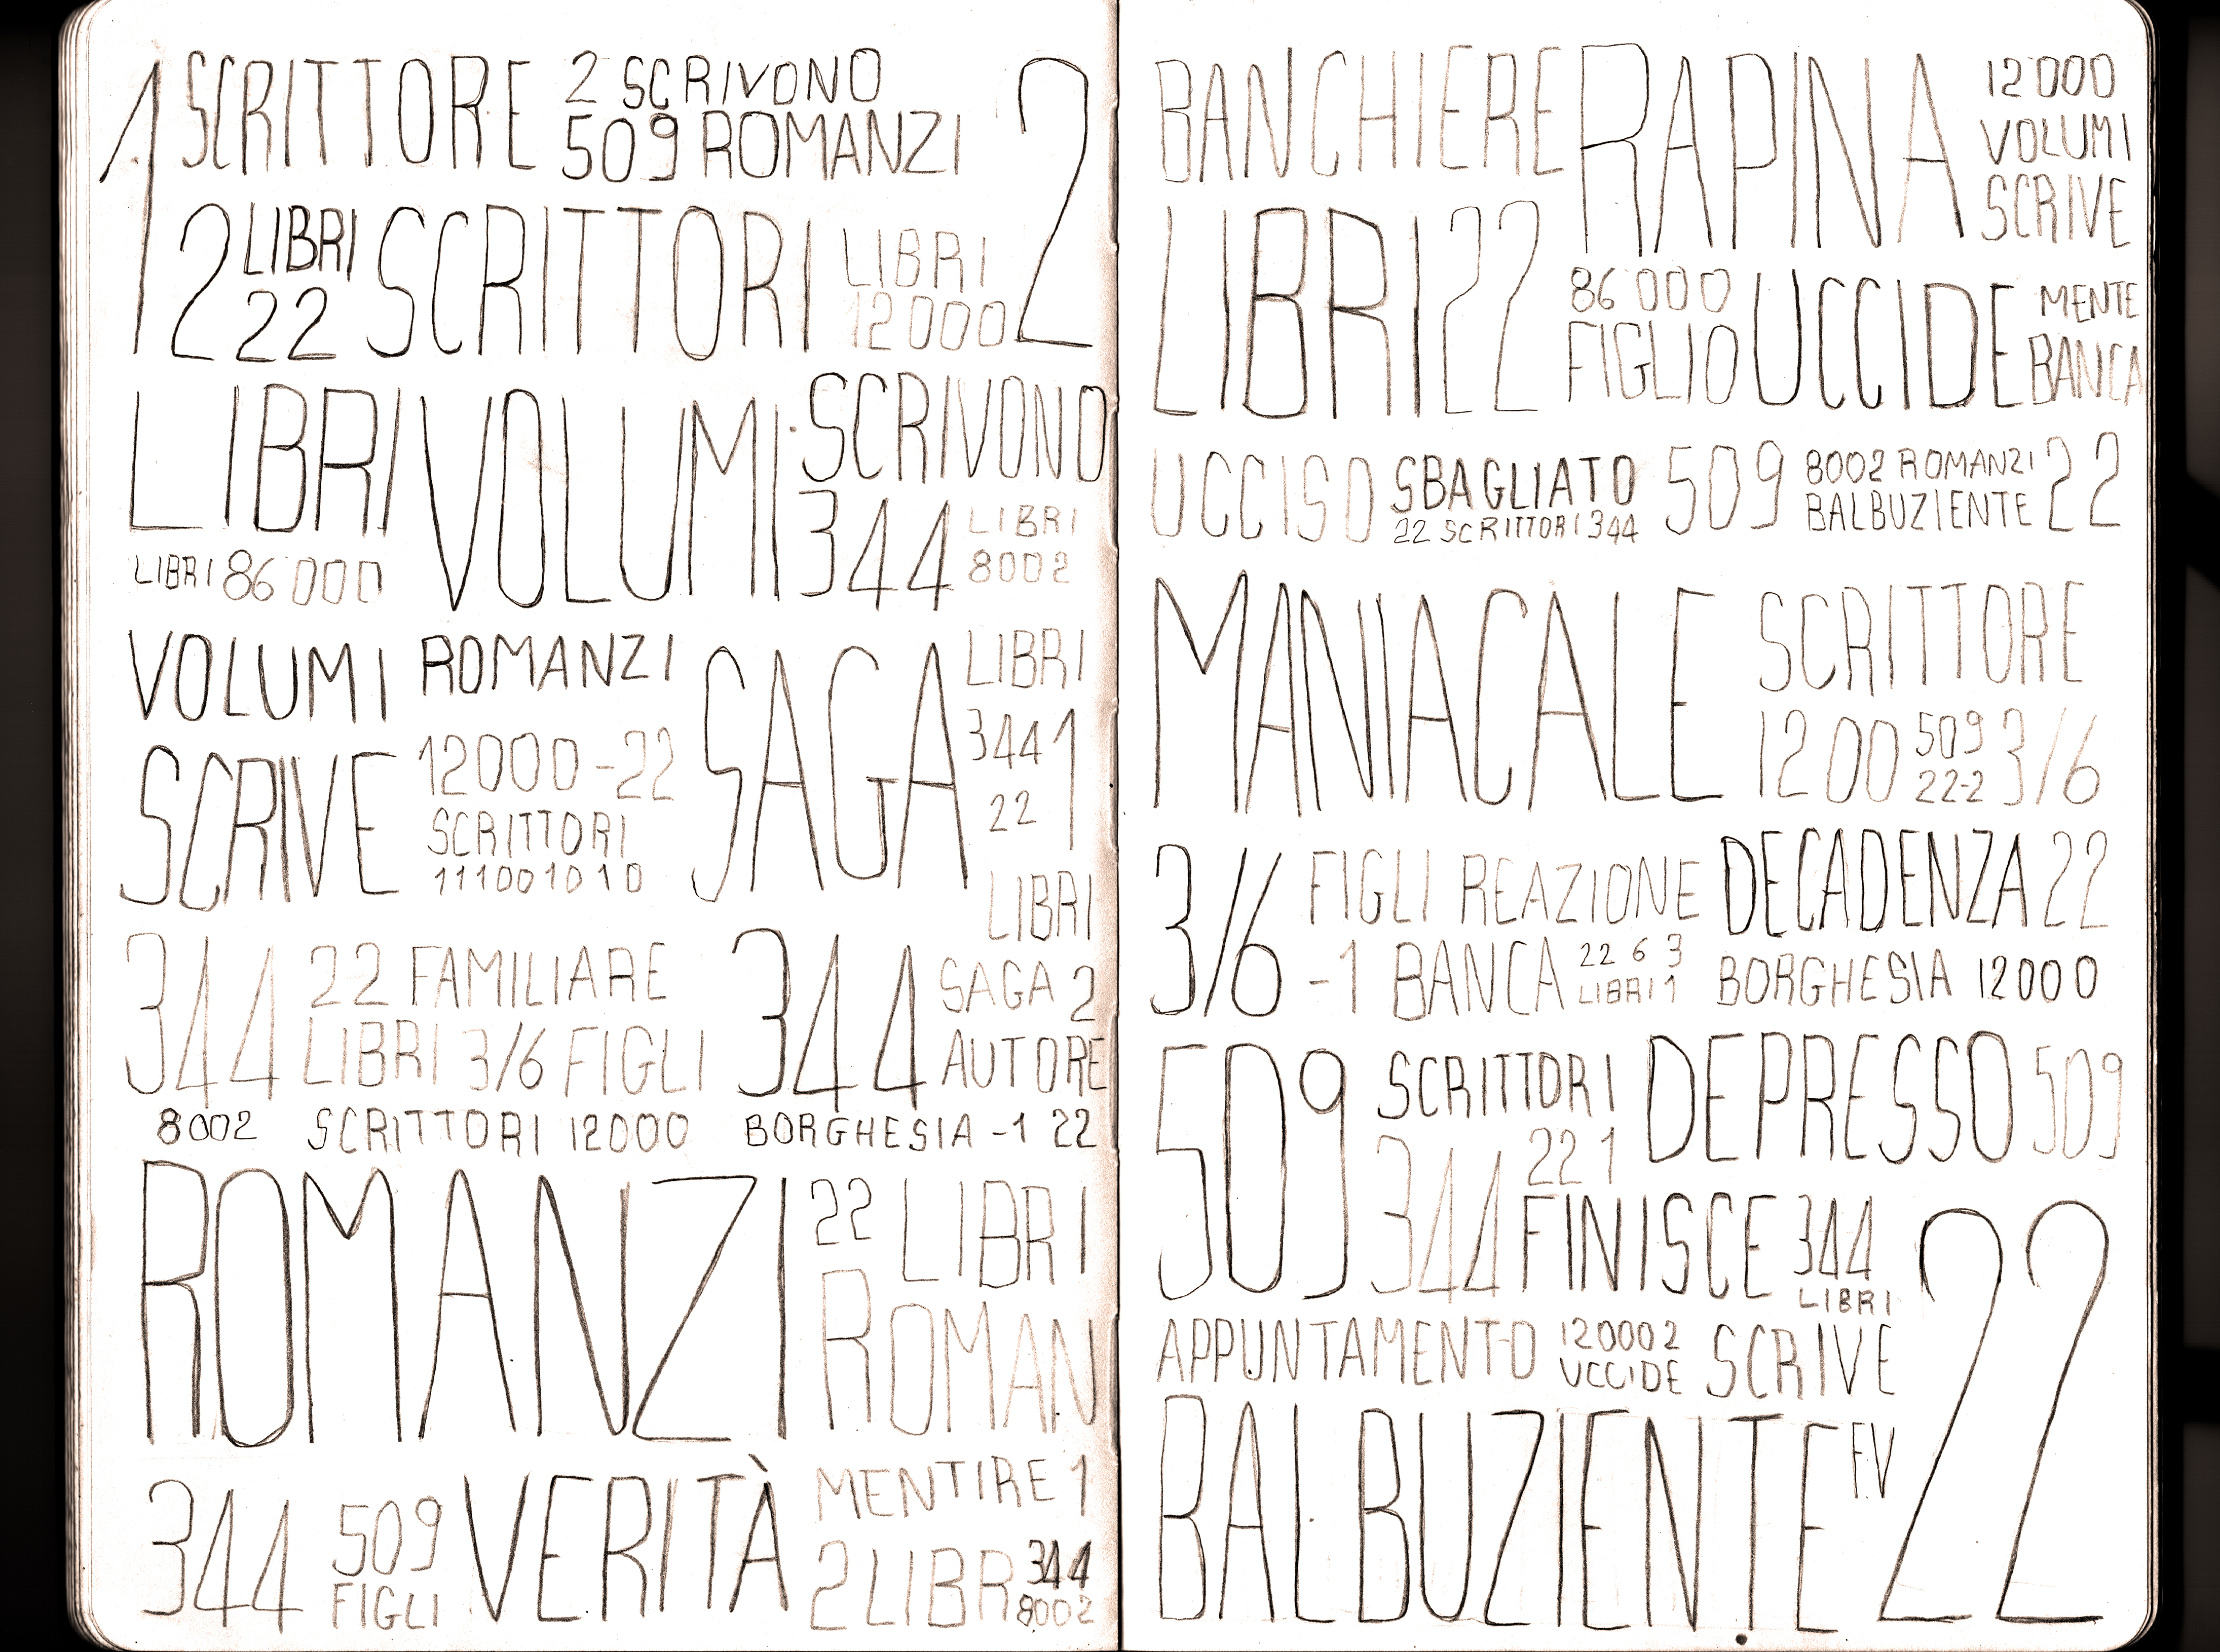 1 SCRITTORE 2 SCRIVONO 2
509 ROMANZI
2 LIBRI SCRITTORI LIBRI
22 12000
LIBRI VOLUMI SCRIVONO
344 LIBRI
LIBRI 86000 8002
VOLUMI ROMANZI SAGA LIBRI
SCRIVE 12000-22 344 1
SCRITTORI 22
111001010
LIBRI
344 22 FAMILIARE 344 SAGA 2
LIBRI 3/6 FIGLI AUTORE
8002 SCRITTORI 12000 BORGHESIA -1 22
ROMANZI 22 LIBRI
ROMAN
344 509 VERITÀ MENTIRE 1
FIGLI 2 LIBR 344
8002
BANCHIERE RAPINA 12000
VOLUMI
SCRIVE
LIBRI 22 86000 UCCIDE MENTE
FIGLIO BANCA
UCCISO SBAGLIATO 509 8002 ROMANZI 22
22 SCRITTORI 344 BALBUZIENTE
MANIACALE SCRITTORE
1200 509 3/6
22-2
3/6 FIGLI REAZIONE DECADENZA 22
-1 BANCA 22 6 3 BORGHESIA 12000
LIBRI 1
509 SCRITTORI DEPRESSO 509
344 22 1
FINISCE 344 22
LIBRI
APPUNTAMENTO 120002 SCRIVE
UCCIDE
BALBUZIENTE F.V